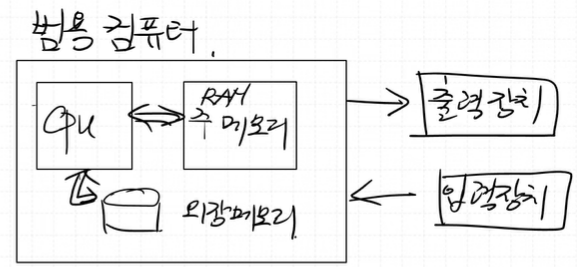 범용 컴퓨터.
CPU
RAM
주 메모리
외장메모리
출력장치
입력장치